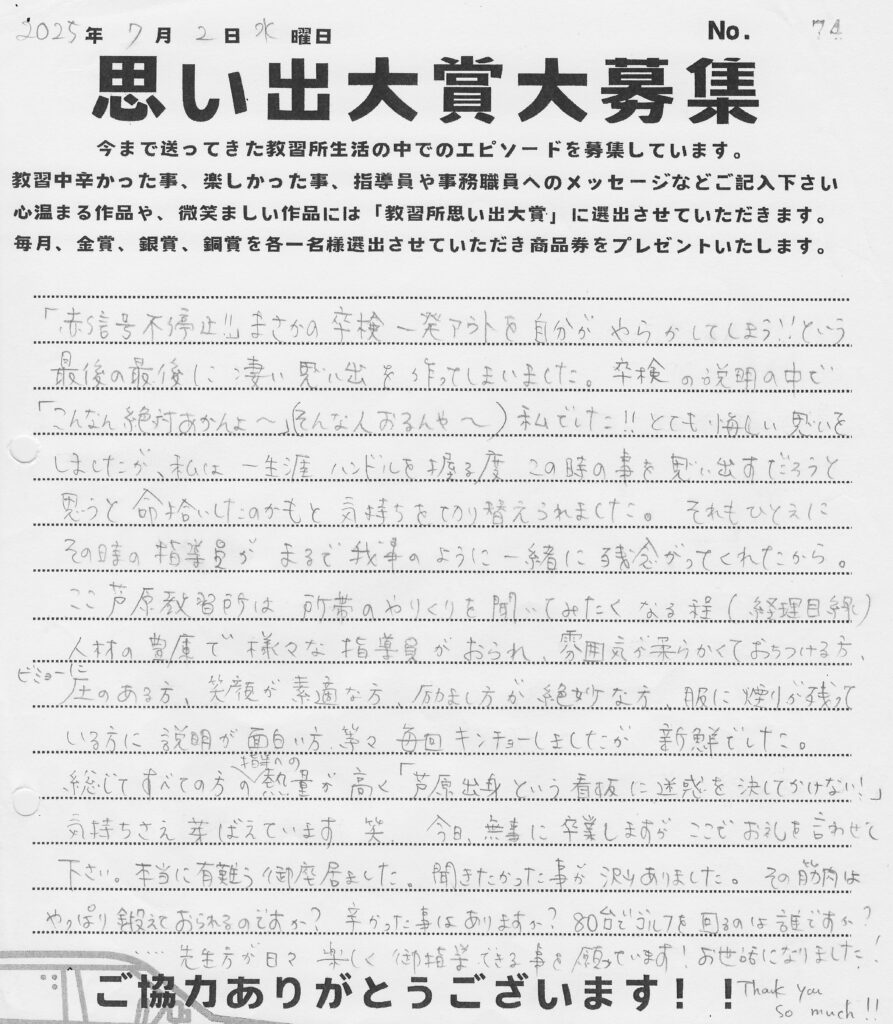 2025年 7月 2日 水曜日 No. 74
思い出大賞大募集
今まで送ってきた教習所生活の中でのエピソードを募集しています。
教習中辛かった事、楽しかった事、指導員や事務職員へのメッセージなどご記入下さい
心温まる作品や、微笑ましい作品には「教習所思い出大賞」に選出させていただきます。
毎月、金賞、銀賞、銅賞を各一名様選出させていただき商品券をプレゼントいたします。
「赤信号不停止!!」まさかの卒検一発アウトを自分がやらかしてしまう!!という
最後の最後に凄い思い出を作ってしまいました。卒検の説明の中で
「こんなん絶対あかんよ〜」(そんな人おるんや〜)私でした!!とても悔しい思いを
しましたが、私は一生涯ハンドルを握る度この時の事を思い出すだろうと
思うと命拾いしたのかもと気持ちを切り替えられました。それもひとえに
その時の指導員がまるで我事のように一緒に残念がってくれたから。
ここ芦原教習所は所帯のやりくりを聞いてみたくなる程(経理目線)
人材の豊庫で様々な指導員がおられ、雰囲気が柔らかくておちつける方、
ビミョーに圧のある方、笑顔が素適な方、励まし方が絶妙な方、服に煙りが残って
いる方に説明が面白い方、等々毎回キンチョーしましたが新鮮でした。
総じてすべての方の指導への熱量が高く「芦原出身という看板に迷惑を決してかけない!」
気持ちさえ芽ばえています 笑 今日、無事に卒業しますがここでお礼を言わせて
下さい。本当に有難う御座居ました。聞きたかった事が沢山ありました。その筋肉は
やっぱり鍛えておられるのですか?辛かった事はありますか?80台でゴルフを回るのは誰ですか?
…先生方が日々楽しく御指導できる事を願っています!お世話になりました!
ご協力ありがとうございます!!
Thank you
so much!!